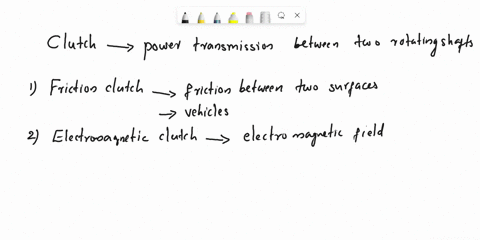 Clutch → power transmission between two rotating shafts
1) Friction clutch → friction between two surfaces
→ vehicles
2) Electromagnetic clutch → electromagnetic field